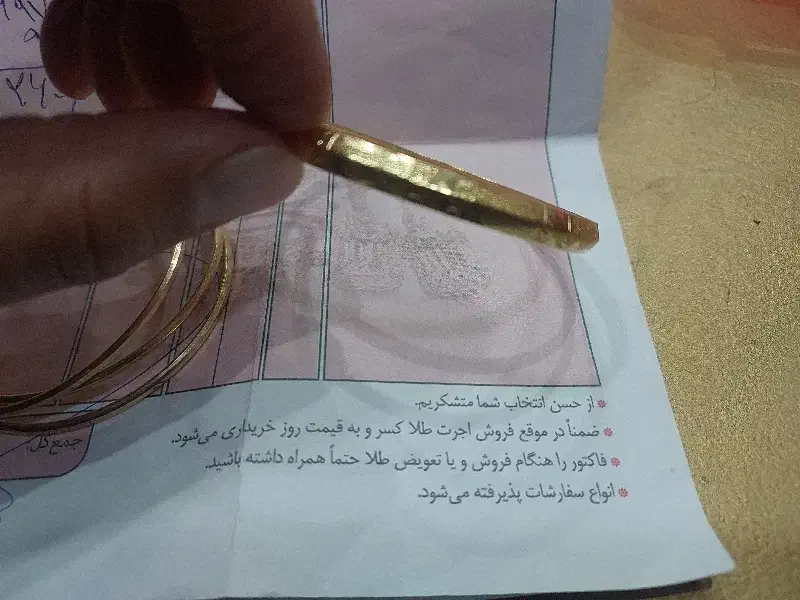 ۲۶۰
* از حسن انتخاب شما متشکریم.
* ضمناً در موقع فروش اجرت طلا کسر و به قیمت روز خریداری می‌شود.
* فاکتور را هنگام فروش و یا تعویض طلا حتماً همراه داشته باشید.
* انواع سفارشات پذیرفته می‌شود.
جمع کل: